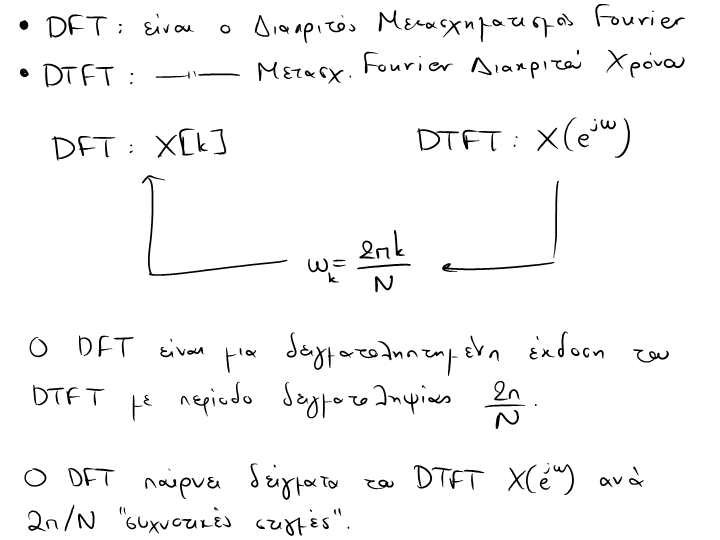 • DFT : είναι ο Διακριτός Μετασχηματισμός Fourier
• DTFT : —〃— Μετασχ. Fourier Διακριτού Χρόνου
DFT : X[k] DTFT : X(e^{jω})
ω_k = 2πk/N
Ο DFT είναι μια δειγματοληπτημένη έκδοση του
DTFT με περίοδο δειγματοληψίας 2π/N .
Ο DFT παίρνει δείγματα του DTFT X(e^{jω}) ανά
2π/N "συχνοτικές στιγμές".